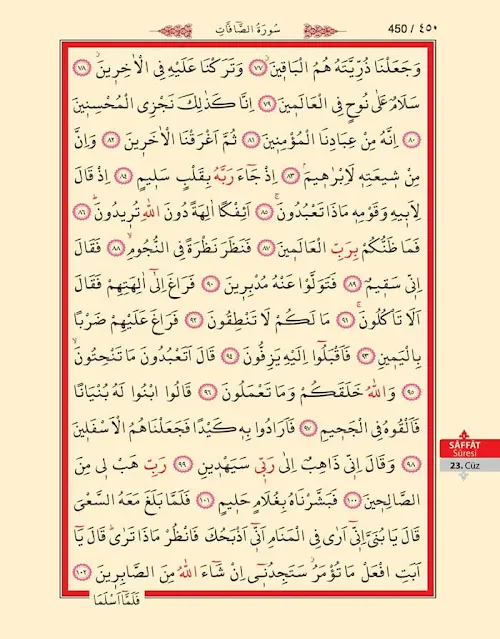 سُورَةُ الصَّٓافَّاتِ
450 / ٤٥٠
وَجَعَلْنَا ذُرِّيَّتَهُ هُمُ الْبَاق۪ينَۘ ﴿٧٧﴾ وَتَرَكْنَا عَلَيْهِ فِي الْاٰخِر۪ينَۘ ﴿٧٨﴾
سَلَامٌ عَلٰى نُوحٍ فِي الْعَالَم۪ينَ ﴿٧٩﴾ اِنَّا كَذٰلِكَ نَجْزِي الْمُحْسِن۪ينَ
﴿٨٠﴾ اِنَّهُ مِنْ عِبَادِنَا الْمُؤْمِن۪ينَ ﴿٨١﴾ ثُمَّ اَغْرَقْنَا الْاٰخَر۪ينَ ﴿٨٢﴾ وَاِنَّ
مِنْ ش۪يعَتِه۪ لَاِبْرٰه۪يمَۘ ﴿٨٣﴾ اِذْ جَٓاءَ رَبَّهُ بِقَلْبٍ سَل۪يمٍ ﴿٨٤﴾ اِذْ قَالَ
لِاَب۪يهِ وَقَوْمِه۪ مَاذَا تَعْبُدُونَۚ ﴿٨٥﴾ اَئِفْكًا اٰلِهَةً دُونَ اللّٰهِ تُر۪يدُونَۜ ﴿٨٦﴾
فَمَا ظَنُّكُمْ بِرَبِّ الْعَالَم۪ينَ ﴿٨٧﴾ فَنَظَرَ نَظْرَةً فِي النُّجُومِۙ ﴿٨٨﴾ فَقَالَ
اِنّ۪ي سَق۪يمٌ ﴿٨٩﴾ فَتَوَلَّوْا عَنْهُ مُدْبِر۪ينَ ﴿٩٠﴾ فَرَاغَ اِلٰٓى اٰلِهَتِهِمْ فَقَالَ
اَلَا تَأْكُلُونَۚ ﴿٩١﴾ مَا لَكُمْ لَا تَنْطِقُونَ ﴿٩٢﴾ فَرَاغَ عَلَيْهِمْ ضَرْبًا
بِالْيَم۪ينِ ﴿٩٣﴾ فَاَقْبَلُٓوا اِلَيْهِ يَزِفُّونَ ﴿٩٤﴾ قَالَ اَتَعْبُدُونَ مَا تَنْحِتُونَۙ
﴿٩٥﴾ وَاللّٰهُ خَلَقَكُمْ وَمَا تَعْمَلُونَ ﴿٩٦﴾ قَالُوا ابْنُوا لَهُ بُنْيَانًا
فَاَلْقُوهُ فِي الْجَح۪يمِ ﴿٩٧﴾ فَاَرَادُوا بِه۪ كَيْدًا فَجَعَلْنَاهُمُ الْاَسْفَل۪ينَ
﴿٩٨﴾ وَقَالَ اِنّ۪ي ذَاهِبٌ اِلٰى رَبّ۪ي سَيَهْد۪ينِ ﴿٩٩﴾ رَبِّ هَبْ ل۪ي مِنَ
الصَّالِح۪ينَ ﴿١٠٠﴾ فَبَشَّرْنَاهُ بِغُلَامٍ حَل۪يمٍ ﴿١٠١﴾ فَلَمَّا بَلَغَ مَعَهُ السَّعْيَ
قَالَ يَا بُنَيَّ اِنّ۪ٓي اَرٰى فِي الْمَنَامِ اَنّ۪ٓي اَذْبَحُكَ فَانْظُرْ مَاذَا تَرٰىۜ قَالَ يَٓا
اَبَتِ افْعَلْ مَا تُؤْمَرُۘ سَتَجِدُن۪ٓي اِنْ شَٓاءَ اللّٰهُ مِنَ الصَّابِر۪ينَ ﴿١٠٢﴾
فَلَمَّٓا اَسْلَمَا
SÂFFÂT
Sûresi
23. Cüz